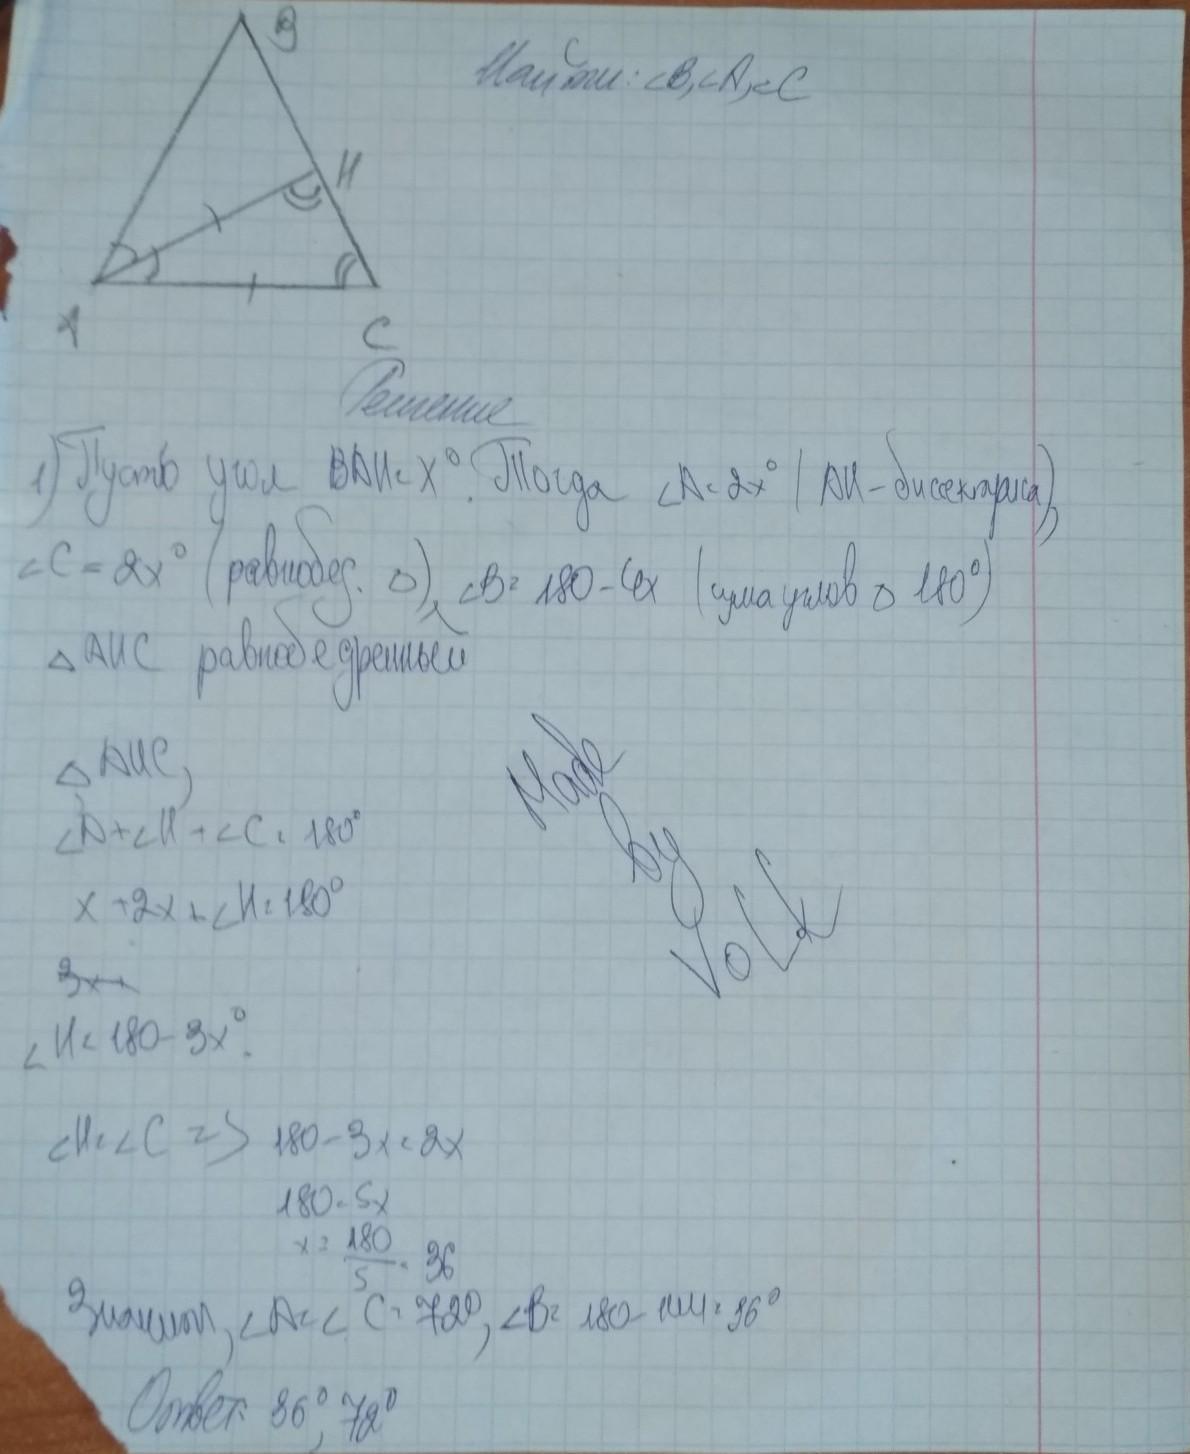 B
Найти: ∠B, ∠A, ∠C
H
A
C
Решение
1) Пусть угол BAH = x°. Тогда ∠A = 2x° (AH - биссектриса),
∠C = 2x° (равнобед. △), ∠B = 180 - 4x (сума углов △ 180°)
△ AHC равнобедренный
△ AHC,
∠A + ∠H + ∠C = 180°
x + 2x + ∠H = 180°
3x +
∠H = 180 - 3x°.
∠H = ∠C => 180 - 3x = 2x
180 = 5x
x = 180/5 = 36
Значит, ∠A = ∠C = 72°, ∠B = 180 - 144 = 36°
Ответ: 36°, 72°
Made
by
Volk